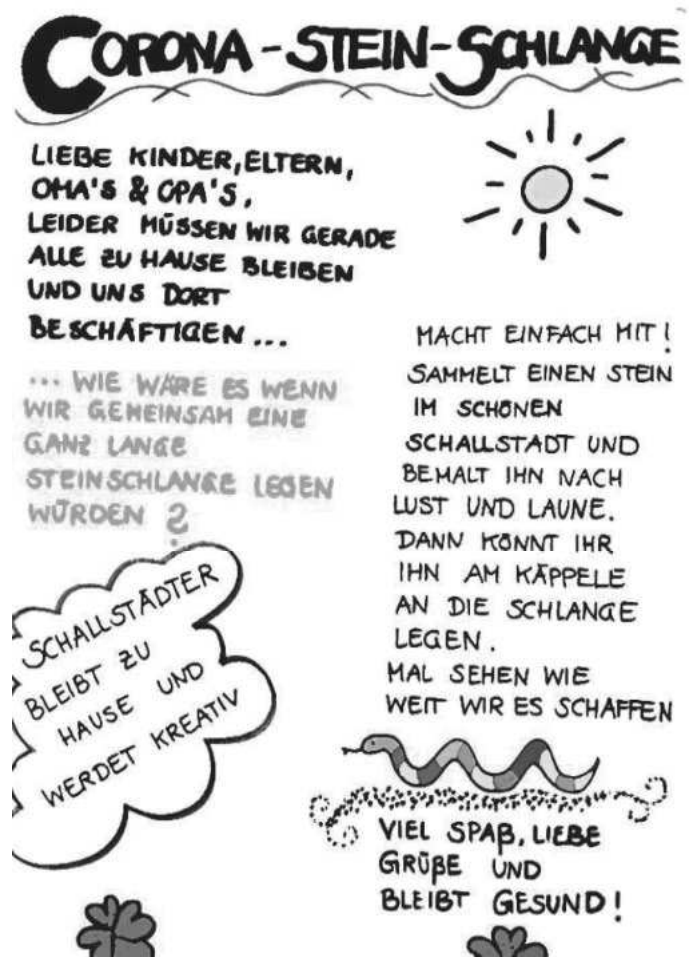 CORONA-STEIN-SCHLANGE
LIEBE KINDER, ELTERN,
OMA'S & OPA'S,
LEIDER MÜSSEN WIR GERADE
ALLE ZU HAUSE BLEIBEN
UND UNS DORT
BESCHÄFTIGEN...
... WIE WÄRE ES WENN
WIR GEMEINSAM EINE
GANZ LANGE
STEINSCHLANGE LEGEN
WÜRDEN ?
SCHALLSTÄDTER
BLEIBT ZU
HAUSE UND
WERDET KREATIV
MACHT EINFACH MIT!
SAMMELT EINEN STEIN
IM SCHÖNEN
SCHALLSTADT UND
BEMALT IHN NACH
LUST UND LAUNE.
DANN KÖNNT IHR
IHN AM KÄPPELE
AN DIE SCHLANGE
LEGEN.
MAL SEHEN WIE
WEIT WIR ES SCHAFFEN
VIEL SPAß, LIEBE
GRÜßE UND
BLEIBT GESUND!